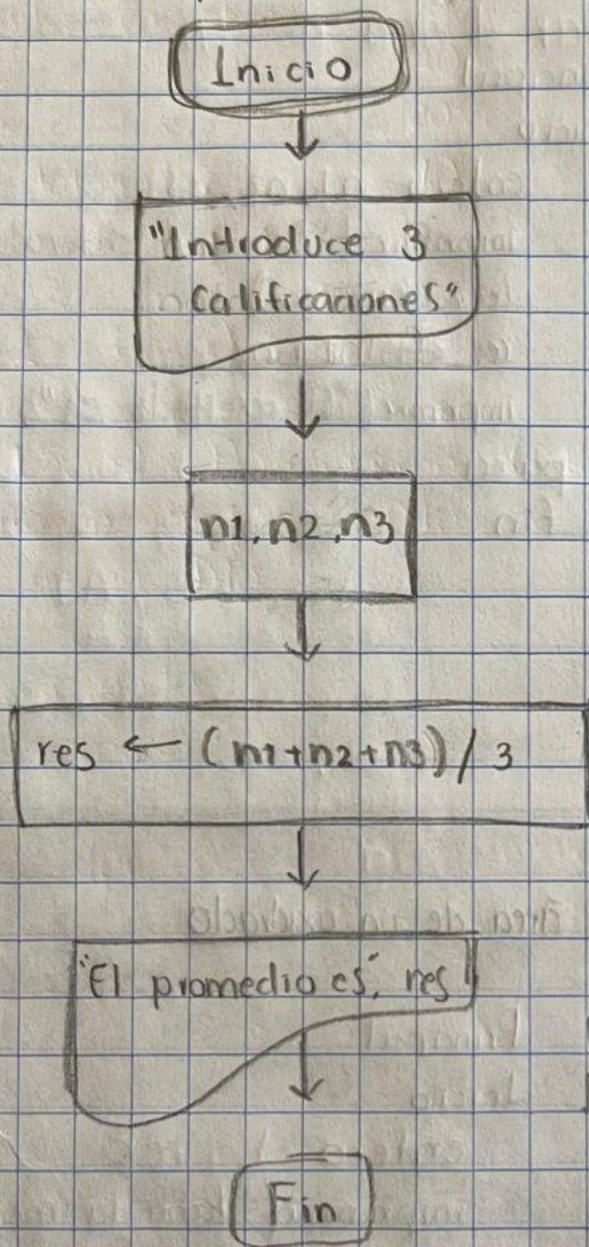 Inicio
"Introduce 3
Calificaciones"
n1, n2, n3
res ← (n1+n2+n3) / 3
"El promedio es", res
Fin